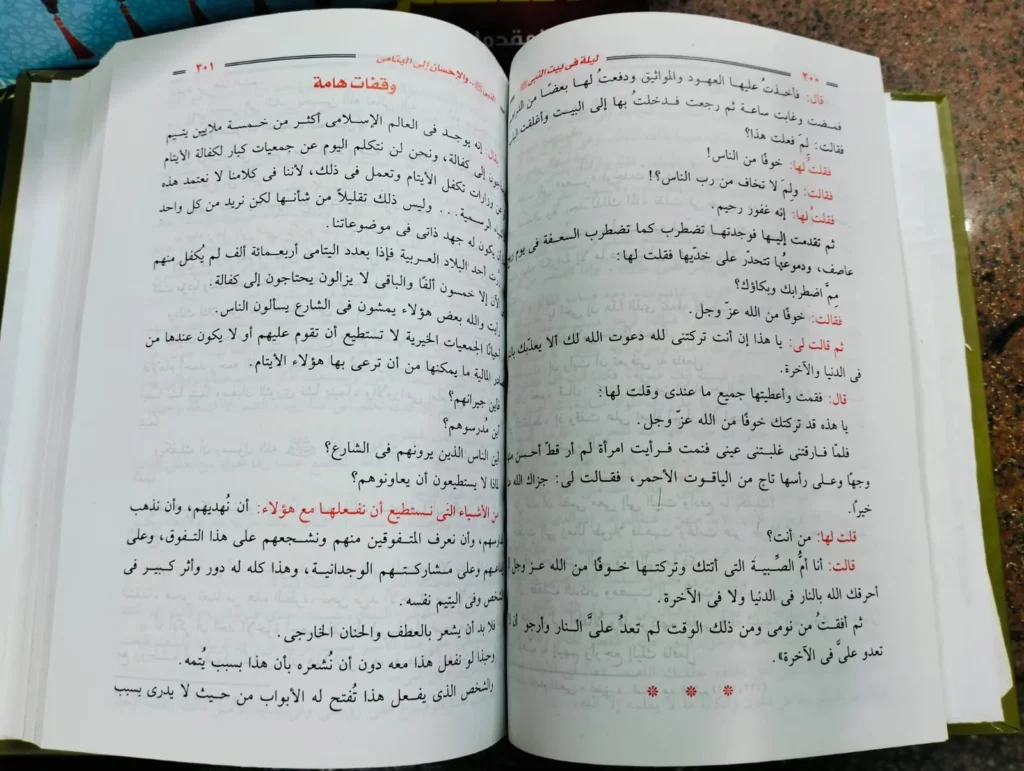 مقدما
٢٠٠ ليلة فى بيت النبى ﷺ
قال: فأخذتُ عليها العهود والمواثيق ودفعتُ لها بعضًا من
فمضت وغابت ساعة ثم رجعت فدخلتُ بها إلى البيت وأغلقت
فقالت: لِمَ فعلت هذا؟
فقلت لها: خوفًا من الناس!
فقالت: ولمَ لا تخاف من رب الناس؟!
فقلتُ لها: إنه غفور رحيم.
ثم تقدمت إليها فوجدتها تضطرب كما تضطرب السعفة فى يوم
عاصف، ودموعُها تتحدّر على خدّيها فقلت لها:
مِمَّ اضطرابك وبكاؤك؟
فقالت: خوفًا من الله عزّ وجل.
ثم قالت لى: يا هذا إن أنت تركتنى لله دعوت الله لك ألا يعذّبك
فى الدنيا والآخرة.
قال: فقمت وأعطيتها جميع ما عندى وقلت لها:
يا هذه قد تركتك خوفًا من الله عزّ وجل.
فلمّا فارقتنى غلبتنى عينى فنمت فرأيت امرأة لم أر قطّ أحسن
وجهًا وعلى رأسها تاج من الياقوت الأحمر، فقالت لى: جزاك الله
خيرًا.
قلت لها: من أنت؟
قالت: أنا أمُّ الصِّبية التى أتتك وتركتها خوفًا من الله عز وجل
أحرقك الله بالنار فى الدنيا ولا فى الآخرة.
ثم أفقتُ من نومى ومن ذلك الوقت لم تعدُ علىَّ النار وأرجو
تعدو علىَّ فى الآخرة».
النبى ﷺ.. والإحسان إلى اليتامى ٢٠١
وقفات هامة
يقال: إنه يوجد فى العالم الإسلامى أكثر من خمسة ملايين يتيم
إلى كفالة، ونحن لن نتكلم اليوم عن جمعيات كبار لكفالة الأيتام
وزارات تكفل الأيتام وتعمل فى ذلك، لأننا فى كلامنا لا نعتمد هذه
الرسمية... وليس ذلك تقليلاً من شأنها لكن نريد من كل واحد
يكون له جهد ذاتى فى موضوعاتنا.
أحد البلاد العربية فإذا بعدد اليتامى أربعمائة ألف لم يُكفل منهم
الآن إلا خمسون ألفًا والباقى لا يزالون يحتاجون إلى كفالة.
رأيت والله بعض هؤلاء يمشون فى الشارع يسألون الناس.
أحيانًا الجمعيات الخيرية لا تستطيع أن تقوم عليهم أو لا يكون عندها من
المالية ما يمكنها من أن ترعى بها هؤلاء الأيتام.
فأين جيرانهم؟
أين مُدرسوهم؟
أين الناس الذين يرونهم فى الشارع؟
لماذا لا يستطيعون أن يعاونوهم؟
من الأشياء التى نستطيع أن نفعلها مع هؤلاء: أن نُهديهم، وأن نذهب
وأن نعرف المتفوقين منهم ونشجعهم على هذا التفوق، وعلى
وعلى مشاركتهم الوجدانية، وهذا كله له دور وأثر كبير فى
وفى اليتيم نفسه.
فلا بد أن يشعر بالعطف والحنان الخارجى.
وحبذا لو نفعل هذا معه دون أن نُشعره بأن هذا بسبب يُتمه.
والشخص الذى يفعل هذا تُفتح له الأبواب من حيث لا يدرى بسبب